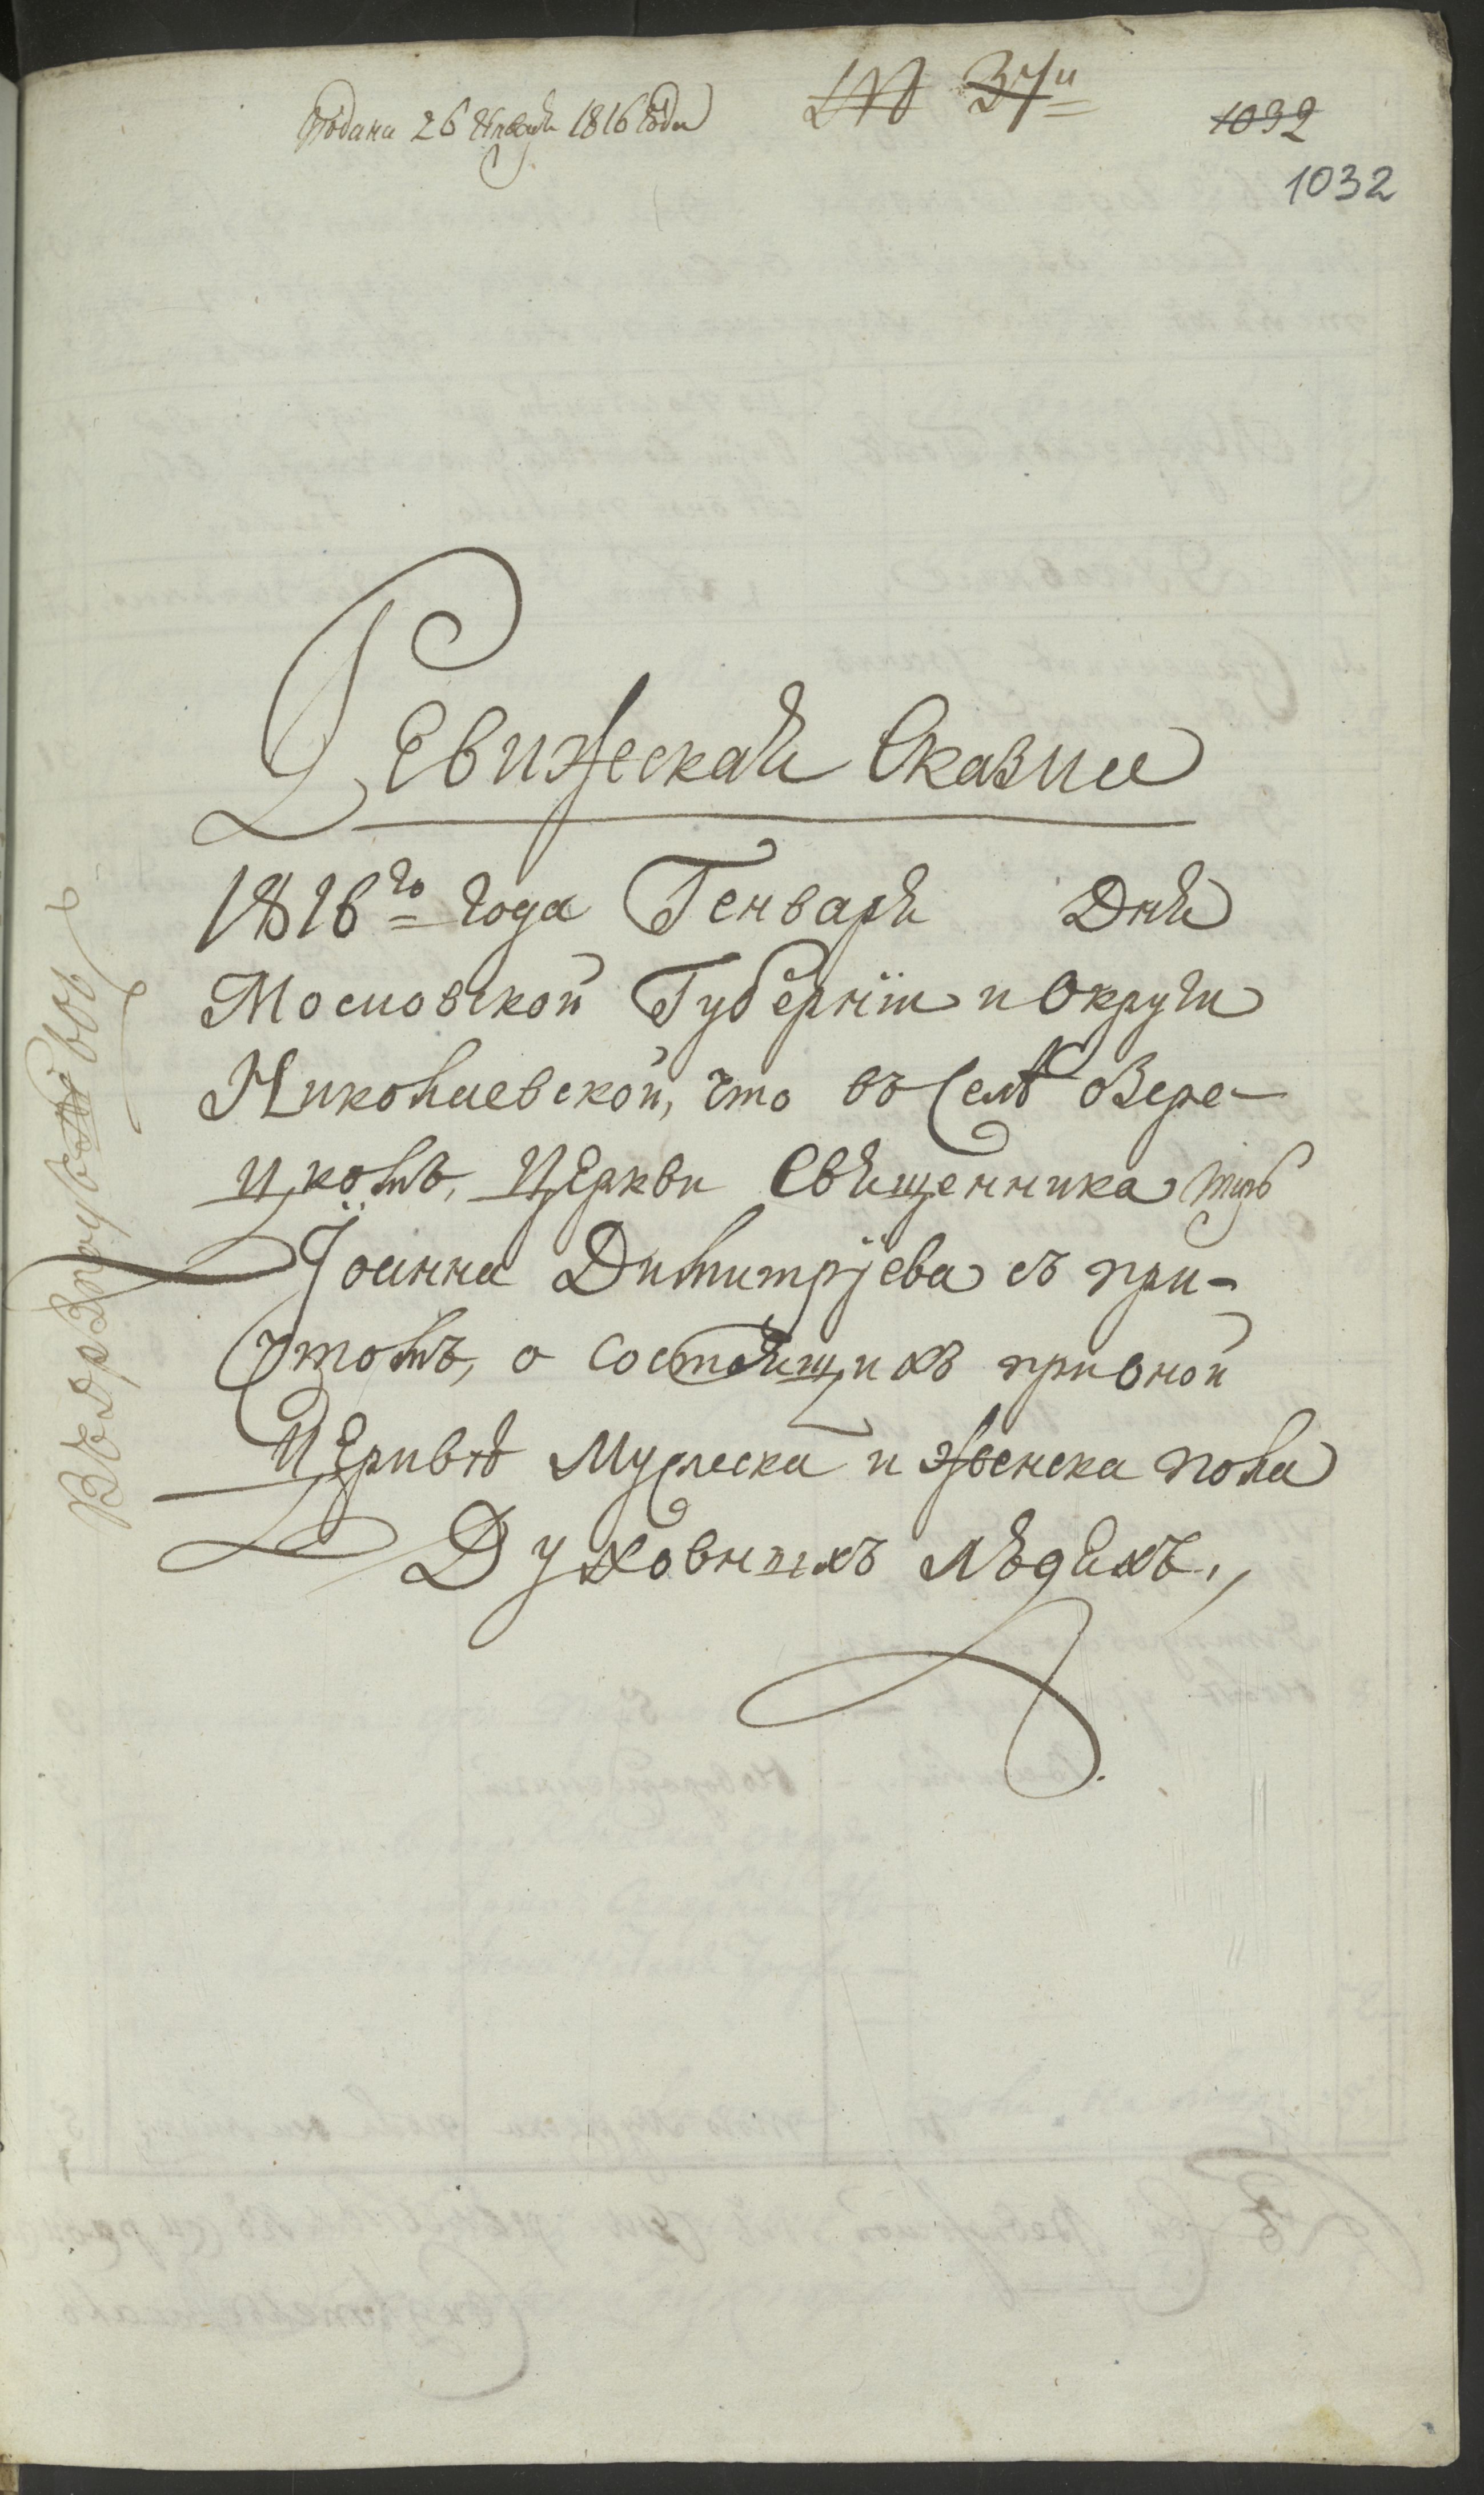 Подана 26 Января 1816 Года
№ 37й
1032
1032
Ревижская Сказка
1816го года Генваря Дня
Московской Губернiи и Округи
Николаевской, что въ Селѣ Озере-
цкомъ, Церкви Священника
Iоанна Димитрiева съ при-
чтомъ, о состоящихъ при оной
Церквѣ Мужеска и женска пола
Духовныхъ людяхъ.